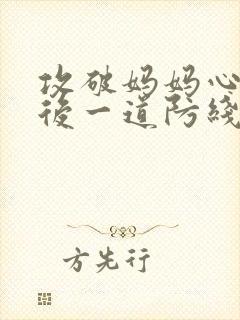 攻破妈妈心
後一道防綫
方先行